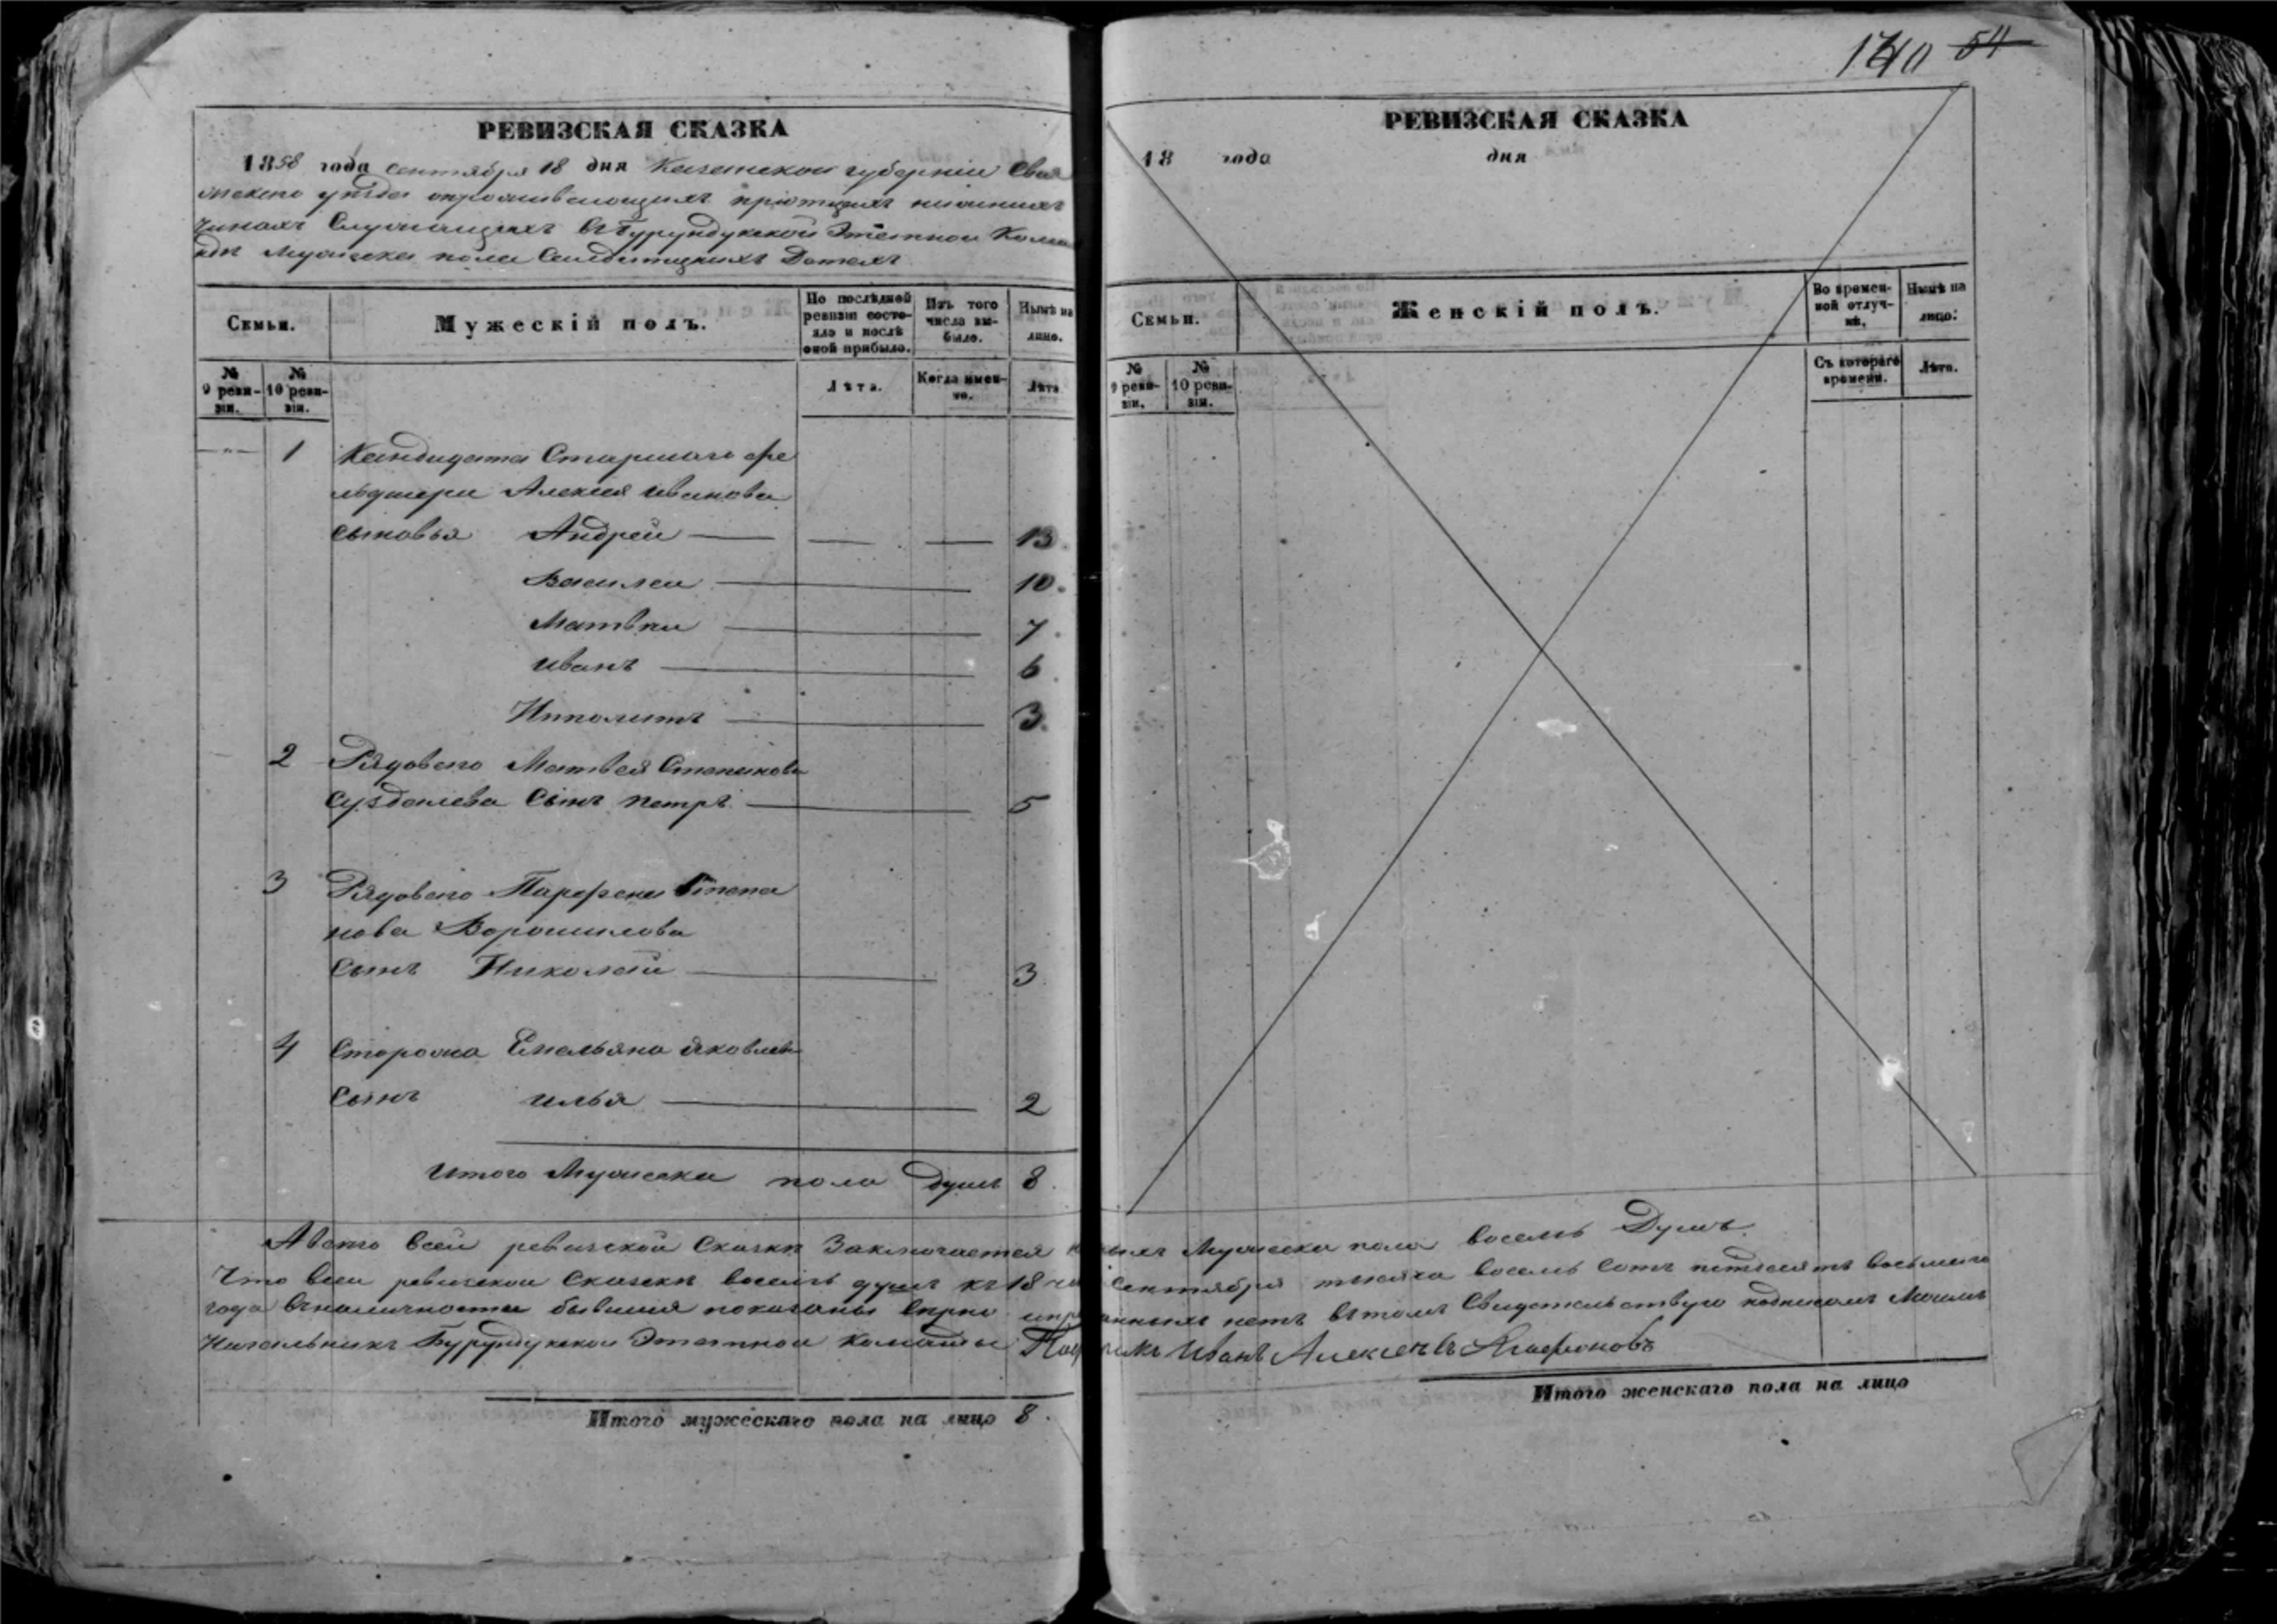 140 54
РЕВИЗСКАЯ СКАЗКА
1858 года сентября 18 дня Казанской губерніи Свія
жскаго уѣзда
чинахъ Служащихъ въ Бурундукской Этапной Коман
дѣ Мужеска пола Солдатскихъ Дѣтяхъ
Семьи.
Мужескій полъ.
По послѣдней ревизіи состояло и послѣ оной прибыло.
Изъ того числа выбыло.
Нынѣ на лицо.
№ 9 ревизіи.
№ 10 ревизіи.
Лѣта.
Когда именно.
Лѣта
1 Кандидата Старшаго фе
льдшера Алексея Иванова
сыновья Андрей 13.
Василеи 10.
Матвѣи 7.
Иванъ 6
Ипполитъ 3.
2 Рядоваго Матвея Степанова
Суздалева Сынъ Петръ 5
3 Рядоваго Парфена Степа
нова Ворошилова
Сынъ Николай 3
4 Сторожа Емельяна Яковлева
Сынъ Илья 2
Итого Мужеска пола душъ 8.
РЕВИЗСКАЯ СКАЗКА
18 года дня
Семьи.
Женскій полъ.
Во временной отлучкѣ.
Нынѣ на лицо.
№ 9 ревизіи.
№ 10 ревизіи.
Съ котораго времени.
Лѣта.
Авсего всей ревизской Сказкѣ Заключается Мужеска пола восемь Душъ.
Что всеи ревизской Сказкѣ восемь душъ къ 18 Сентября тысяча восемь сотъ пятдесятъ восьмаго
года Вналичности бывшия показаны вѣрно нетъ вътомъ Свидетельствую подписомъ Моимъ
Начальникъ Бурундукской Этапной команды Иванъ Алексеевъ Агафоновъ
Итого мужескаго пола на лицо 8.
Итого женскаго пола на лицо